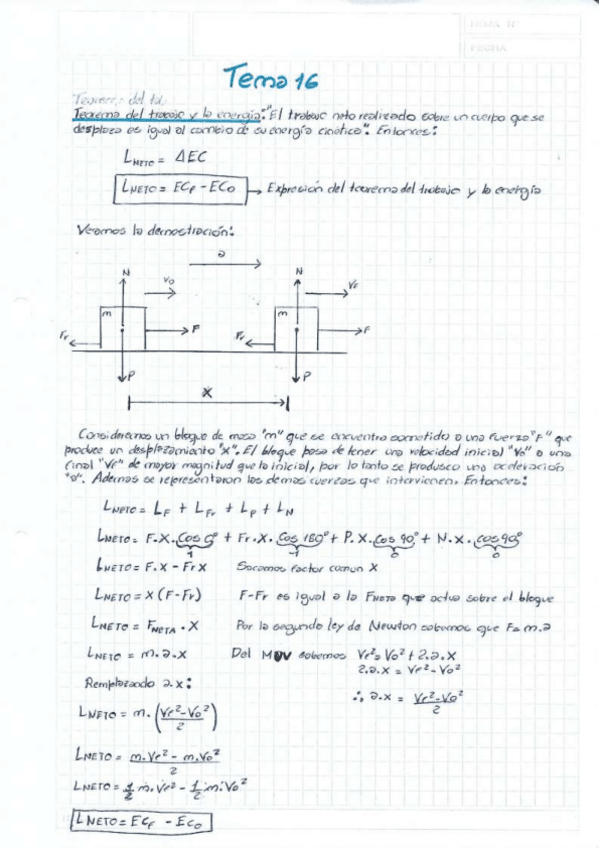 HOJA N°
FECHA
Tema 16
Teorema del trabajo y la energía: "El trabajo neto realizado sobre un cuerpo que se
desplaza es igual al cambio de su energía cinética". Entonces:
LNETO = ΔEC
LNETO = ECF - ECO → Expresión del teorema del trabajo y la energía
Veamos la demostración:
a
N Vo N VF
m F m F
Fr Fr
P P
X
Consideremos un bloque de masa "m" que se encuentra sometido a una fuerza "F" que
produce un desplazamiento "x". El bloque pasa de tener una velocidad inicial "Vo" a una
final "VF" de mayor magnitud que la inicial, por lo tanto se produsco una aceleración
"a". Ademas se representaron las demas fuerzas que intervienen. Entonces:
LNETO = LF + LFr + LP + LN
LNETO = F.X.Cos 0° + Fr.X.Cos 180° + P.X.Cos 90° + N.X.cos 90°
1 -1 0 0
LNETO = F.X - Fr X Sacamos factor comun X
LNETO = X (F-Fr) F-Fr es igual a la FNETA que actua sobre el bloque
LNETO = FNETA . X Por la segunda ley de Newton sabemos que F= m.a
LNETO = m.a.x Del MUV sabemos VF²= Vo² + 2.a.x
2.a.x = VF² - Vo²
Remplazando a.x: ∴ a.x = VF² - Vo² / 2
LNETO = m. (VF² - Vo² / 2)
LNETO = m.VF² - m.Vo² / 2
LNETO = 1/2 m.VF² - 1/2 m.Vo²
LNETO = ECF - ECO